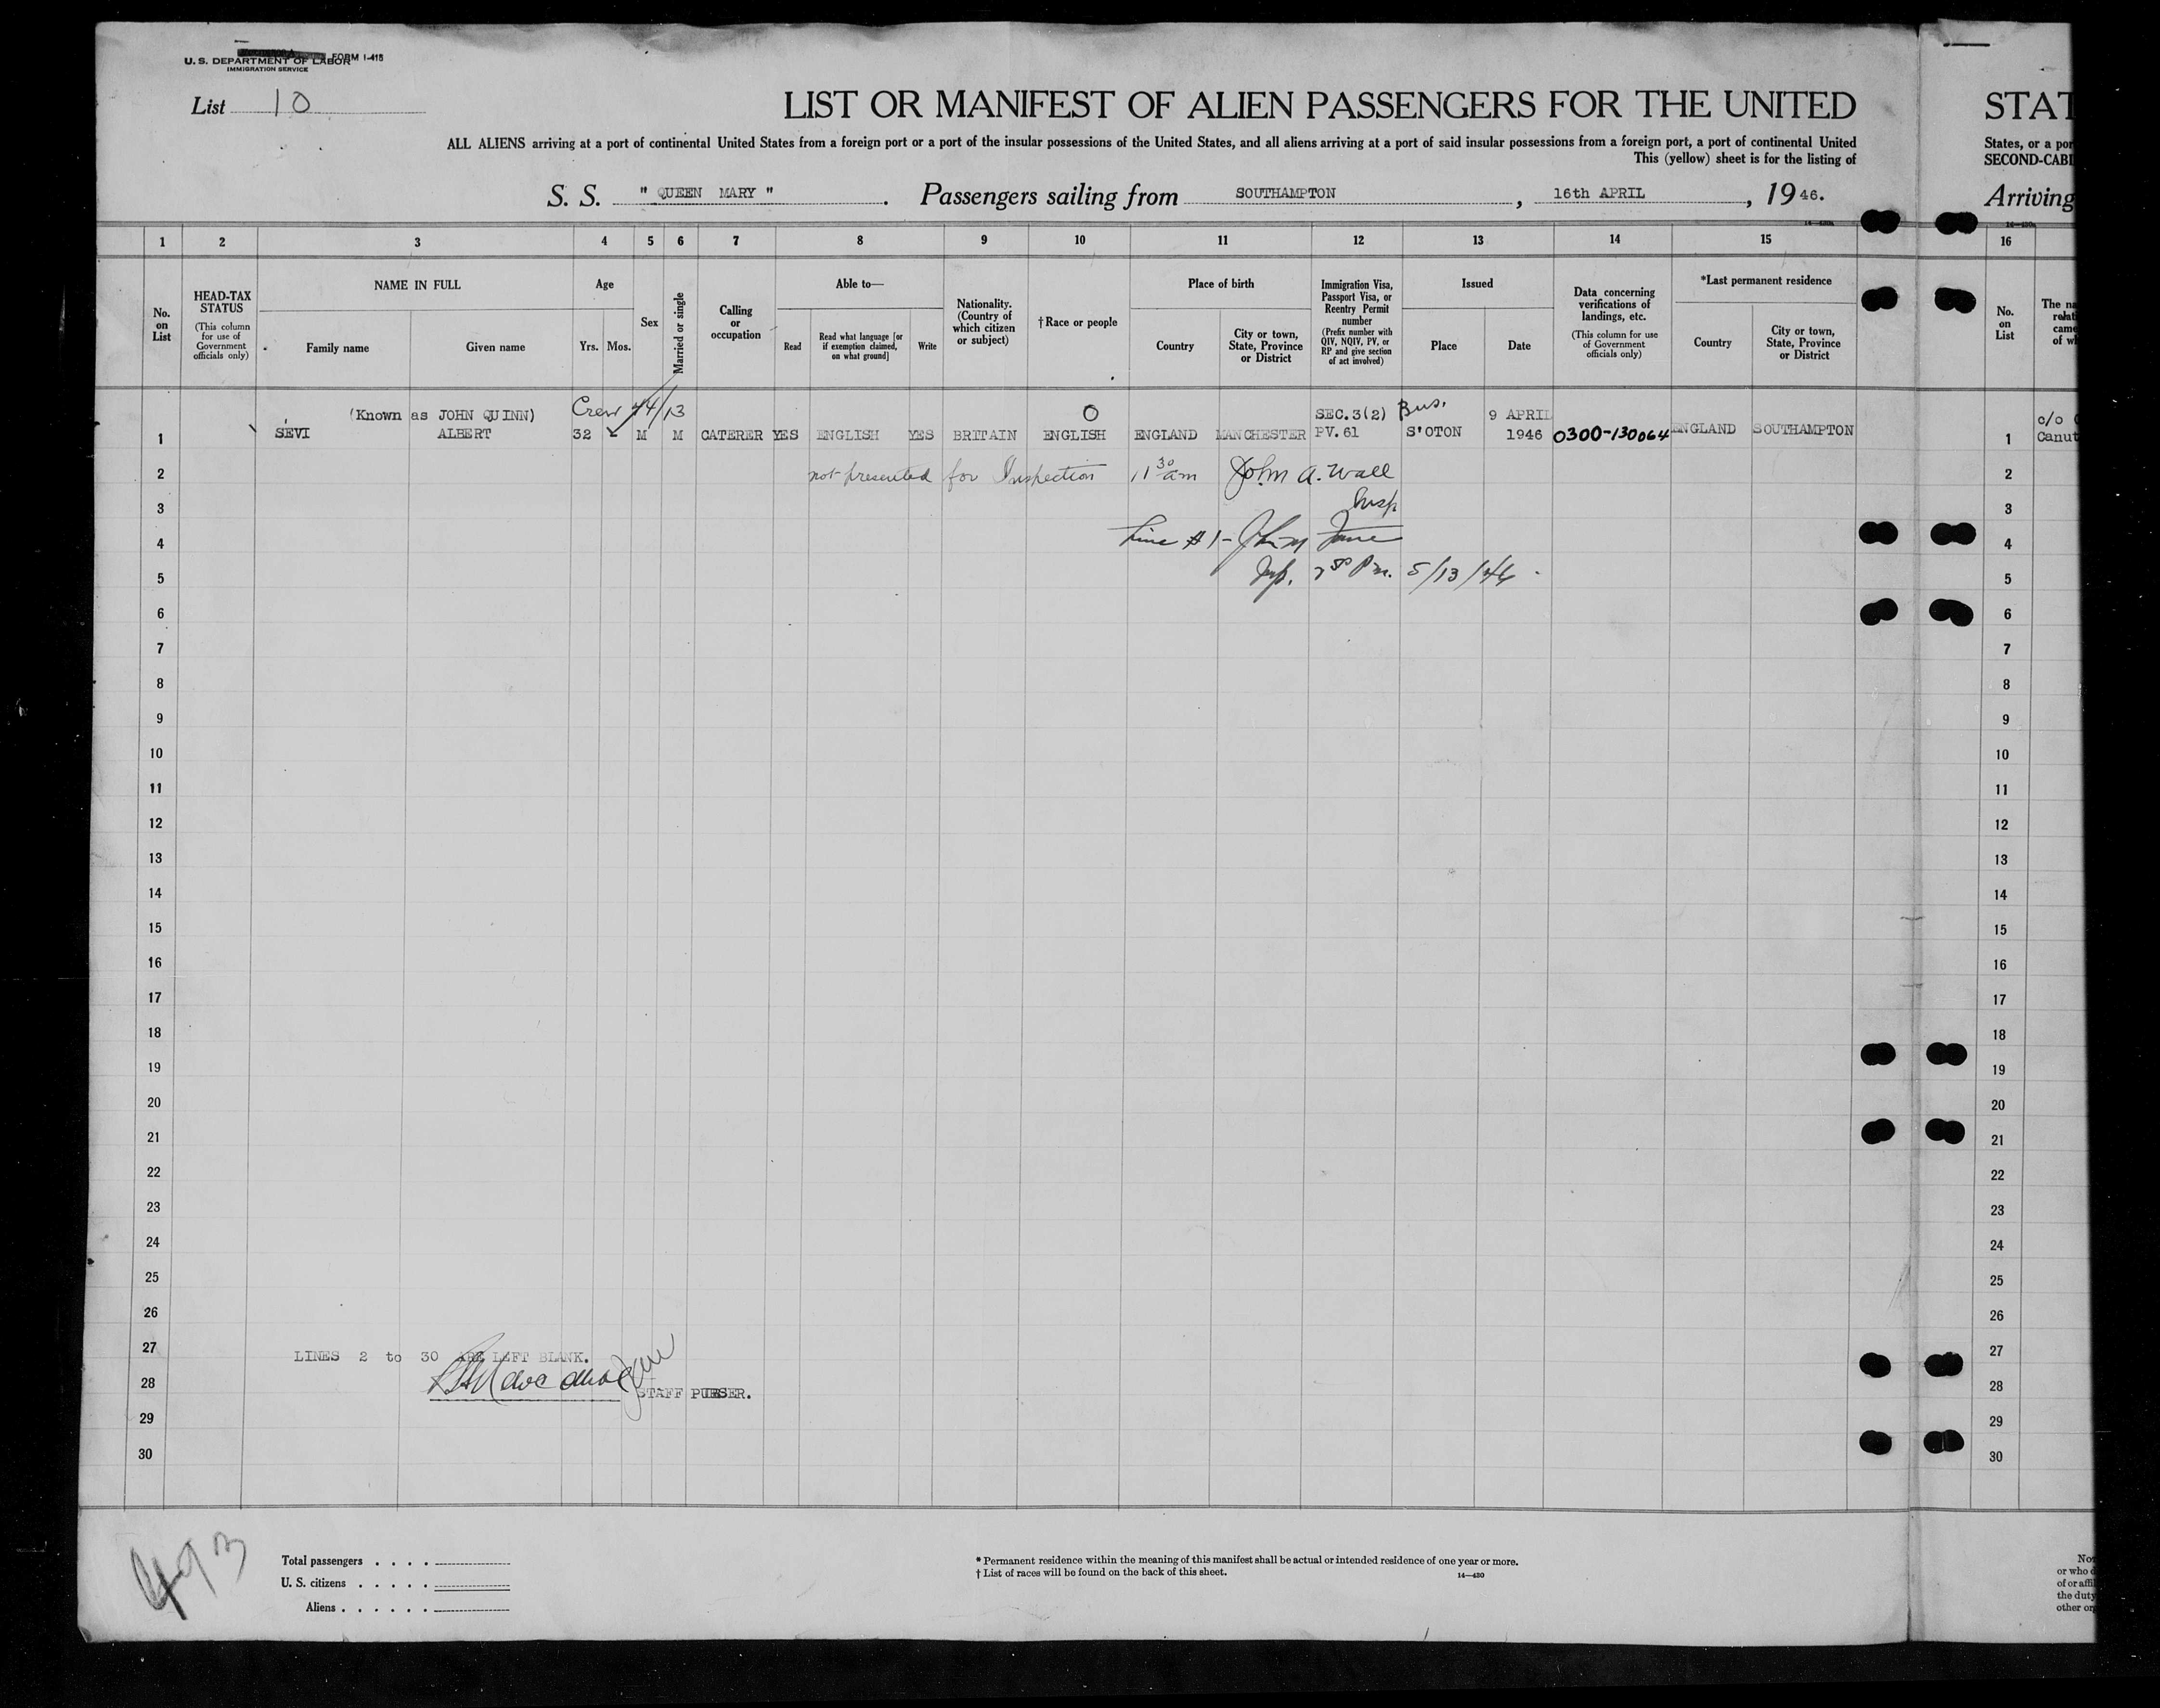 U. S. DEPARTMENT OF LABOR FORM I-415
IMMIGRATION SERVICE
List 10
LIST OR MANIFEST OF ALIEN PASSENGERS FOR THE UNITED
STAT
ALL ALIENS arriving at a port of continental United States from a foreign port or a port of the insular possessions of the United States, and all aliens arriving at a port of said insular possessions from a foreign port, a port of continental United
States, or a por
This (yellow) sheet is for the listing of
SECOND-CABI
S. S. " QUEEN MARY ". Passengers sailing from SOUTHAMPTON, 16th APRIL, 1946.
Arriving
1 2 3 4 5 6 7 8 9 10 11 12 13 14 15 16
No. on List
HEAD-TAX STATUS
(This column for use of Government officials only)
NAME IN FULL
Family name
Given name
Age
Yrs.
Mos.
Sex
Married or single
Calling or occupation
Able to—
Read
Read what language [or if exemption claimed, on what ground]
Write
Nationality. (Country of which citizen or subject)
†Race or people
Place of birth
Country
City or town, State, Province or District
Immigration Visa, Passport Visa, or Reentry Permit number
(Prefix number with QIV, NQIV, PV, or RP and give section of act involved)
Issued
Place
Date
Data concerning verifications of landings, etc.
(This column for use of Government officials only)
*Last permanent residence
Country
City or town, State, Province or District
No. on List
The na
relati
came
of wh
(Known as JOHN QUINN) Crew 44/13 O SEC.3(2) Bus. 9 APRIL c/o
1 SEVI ALBERT 32 M M CATERER YES ENGLISH YES BRITAIN ENGLISH ENGLAND MANCHESTER PV.61 S'OTON 1946 0300-130064 ENGLAND SOUTHAMPTON 1 Canut
2 not presented for Inspection 11 30 am John A. Wall 2
3 Insp. 3
4 Line #1- 4
5 Insp. Pm. 5/13/46 5
6 6
7 7
8 8
9 9
10 10
11 11
12 12
13 13
14 14
15 15
16 16
17 17
18 18
19 19
20 20
21 21
22 22
23 23
24 24
25 25
26 26
27 LINES 2 to 30 ARE LEFT BLANK. 27
28 STAFF PURSER. 28
29 29
30 30
493
Total passengers . . . .
U. S. citizens . . . . .
Aliens . . . . . .
* Permanent residence within the meaning of this manifest shall be actual or intended residence of one year or more.
† List of races will be found on the back of this sheet. 14—430
Not
or who d
of or affil
the duty
other org